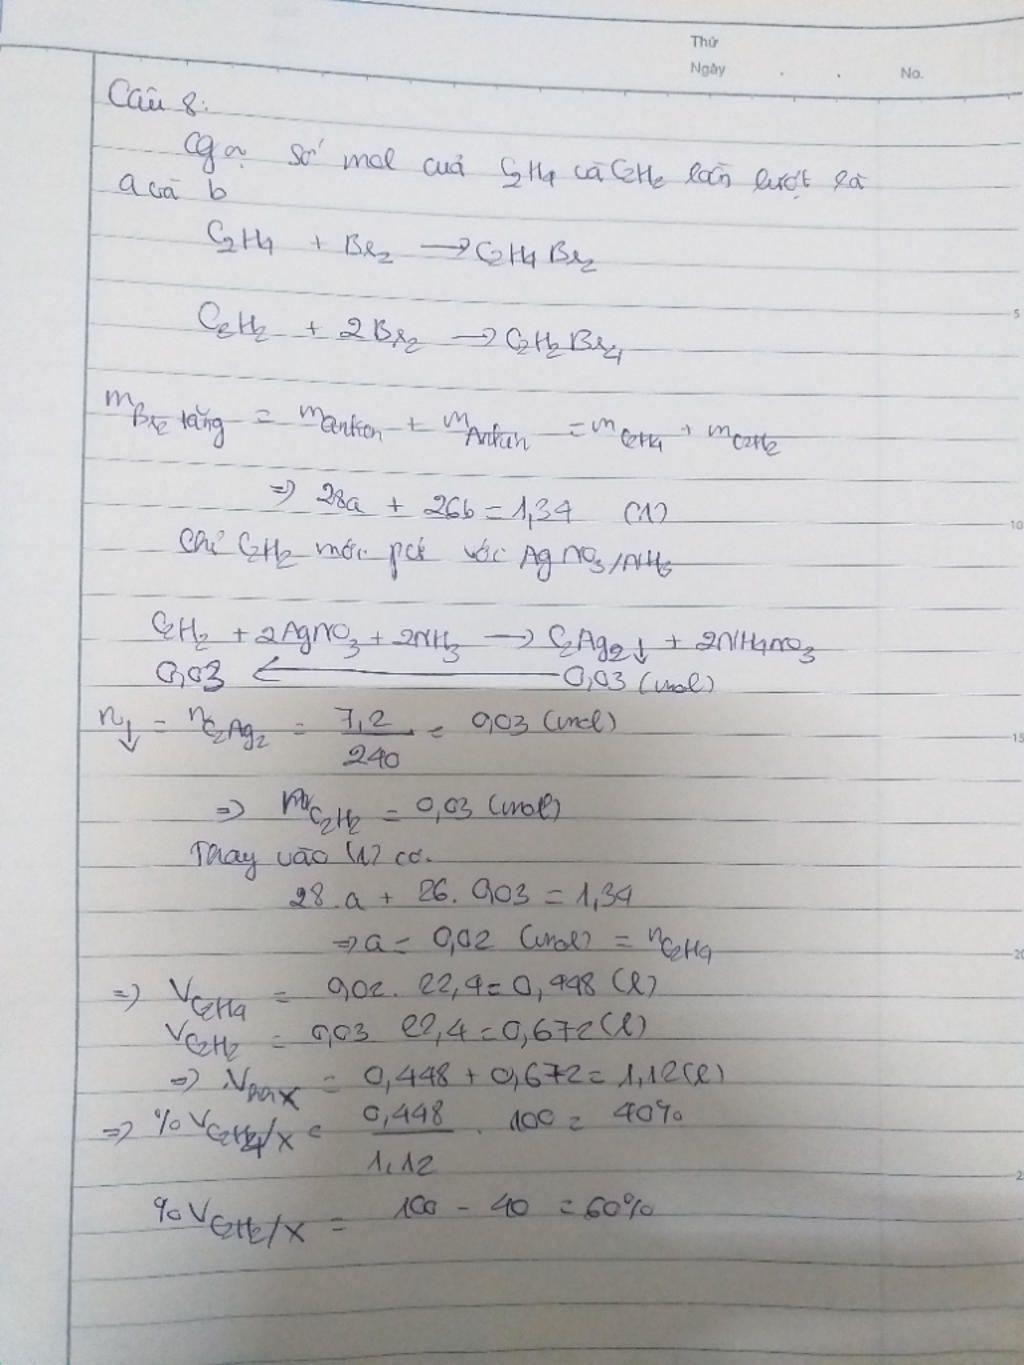 Thứ
Ngày . . No.
Câu 8:
Gọi số mol của C2H4 và C2H2 lần lượt là
a và b
C2H4 + Br2 → C2H4Br2
5
C2H2 + 2Br2 → C2H2Br4
mBr2 tăng = manken + mAnkin = mC2H4 + mC2H2
⇒ 28a + 26b = 1,34 (1)
10
Chỉ C2H2 mới pứ với AgNO3/NH3
C2H2 + 2AgNO3 + 2NH3 → C2Ag2↓ + 2NH4NO3
0,03 ← 0,03 (mol)
n↓ = nC2Ag2 = 7,2/240 = 0,03 (mol)
15
⇒ nC2H2 = 0,03 (mol)
Thay vào (1) có.
28.a + 26. 0,03 = 1,34
⇒ a = 0,02 (mol) = nC2H4
20
⇒ VC2H4 = 0,02. 22,4 = 0,448 (l)
VC2H2 = 0,03 22,4 = 0,672 (l)
⇒ V = 0,448 + 0,672 = 1,12 (l)
⇒ %VC2H4/X = 0,448/1,12 . 100 = 40%
2
%VC2H2/X = 100 - 40 = 60%